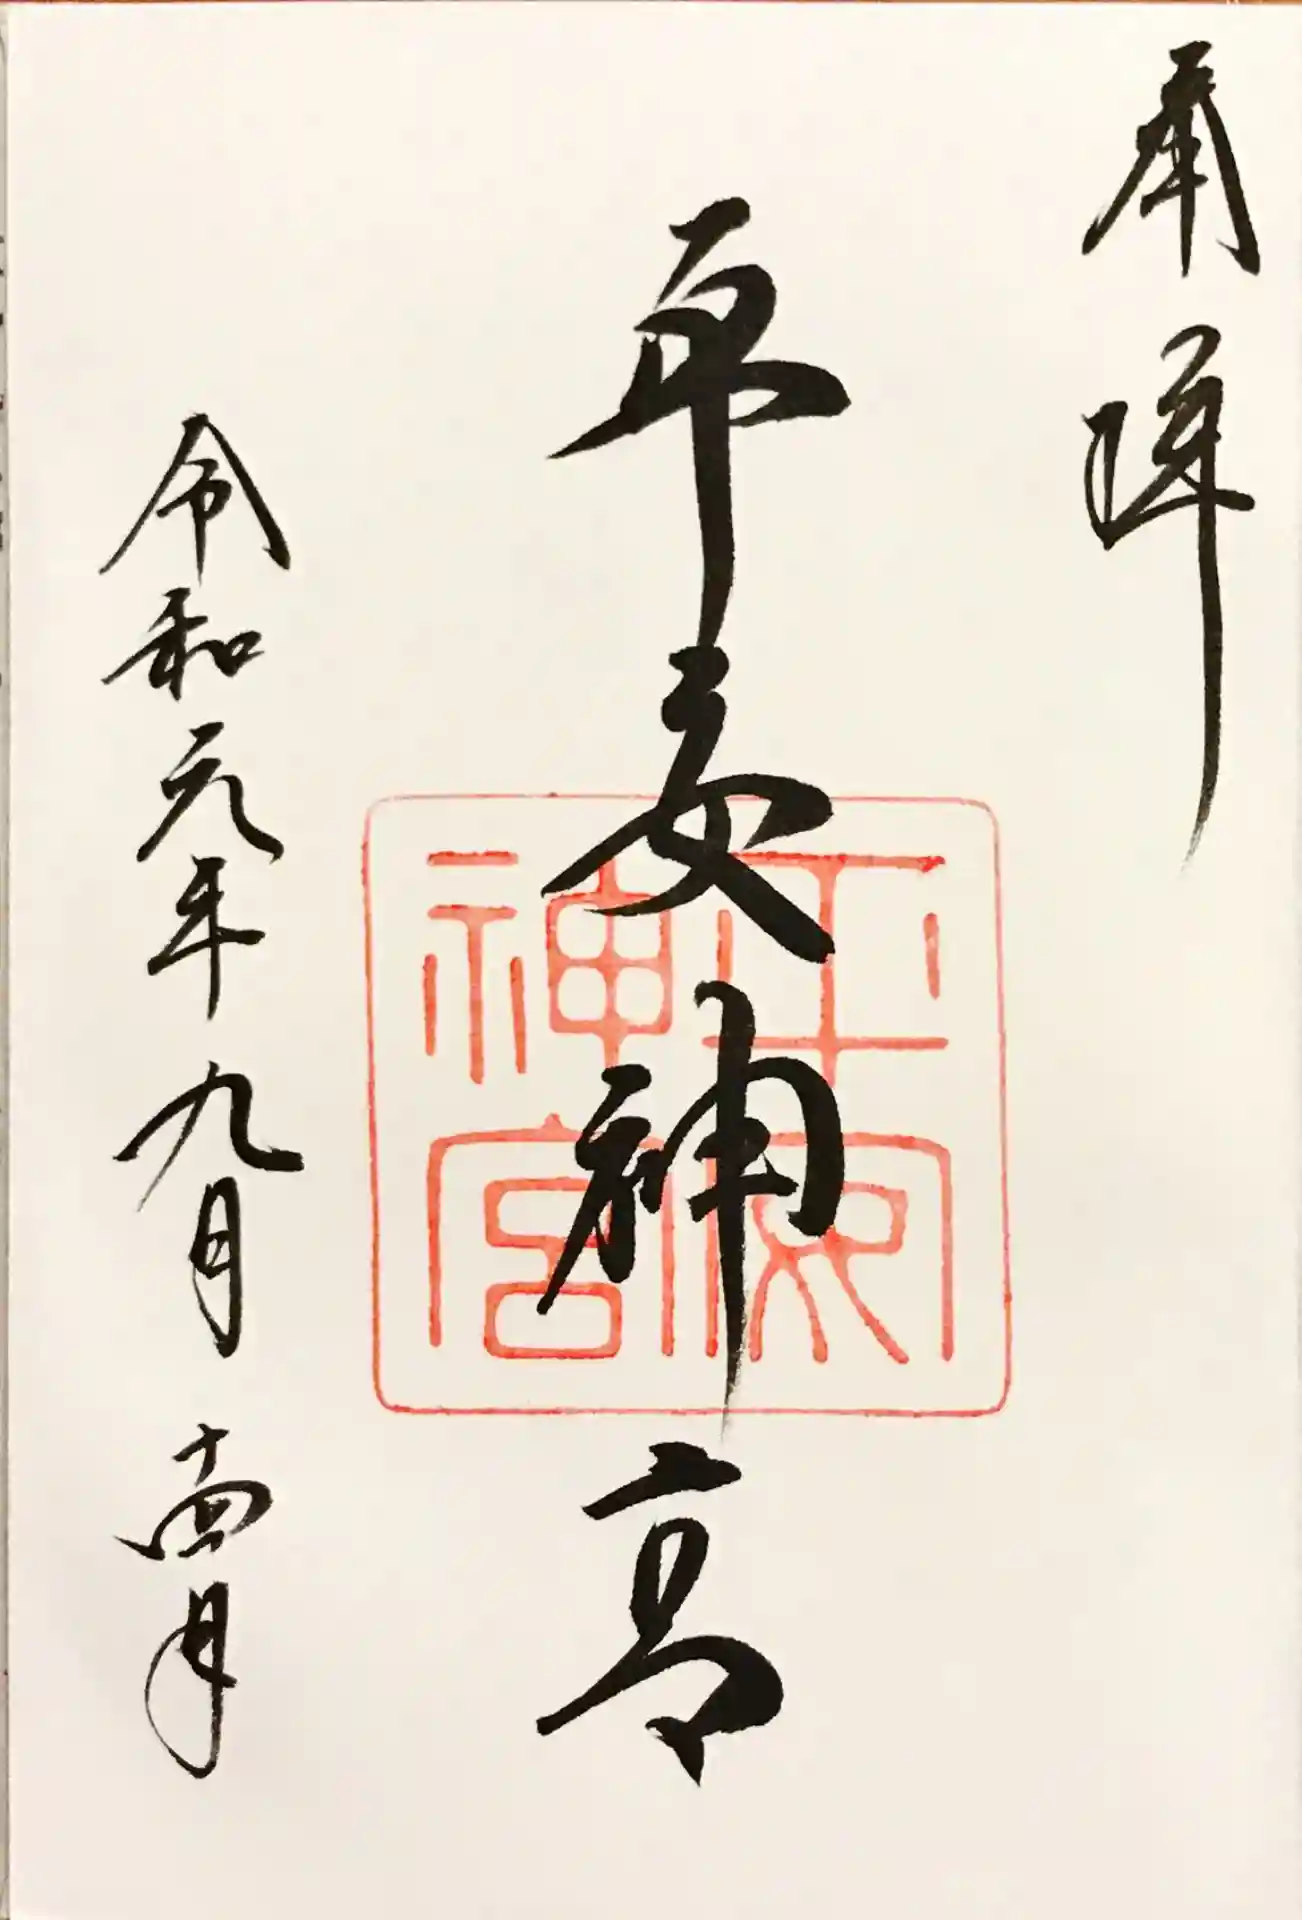 奉拝
平安神宮
平安神宮
令和元年九月十四日